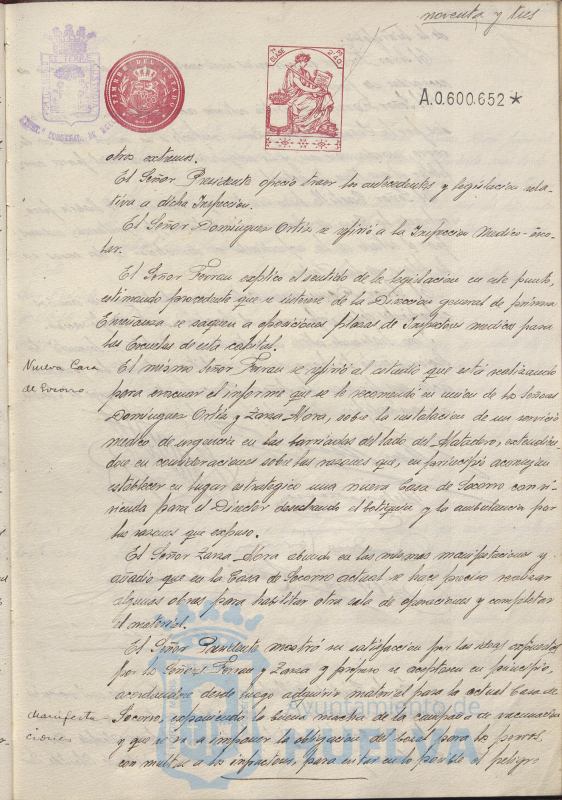 noventa y tres
TIMBRE DEL ESTADO
CLASE
A.0.600.652*
otros extremos.
El Señor Presidente ofreció traer los antecedentes y legislacion rela-
tiva a dicha Inspeccion.
El Señor Dominguez Ortiz se refirió a la Inspeccion Medico-esco-
lar.
El Señor Terrau explicó el sentido de la legislacion en este punto,
estimando procedente que se interese de la Direccion general de primera
Enseñanza se saquen a oposiciones plazas de Inspectores medicos para
las Escuelas de esta capital.
Nueva Casa
de Socorro.
El mismo Señor Terrau se refirió al estudio que está realizando
para evacuar el informe que se le recomendó en union de los Señores
Dominguez Ortiz y Zarza Mora, sobre la instalacion de un servicio
medico de urgencia en las barriadas del lado del Matadero, extendien-
dose en consideraciones sobre las razones que, en principio aconsejan
establecer en lugar estrategico una nueva Casa de Socorro con vi-
vienda para el Director desechando el botiquin y la ambulancia por
las razones que expuso.
El Señor Zarza Mora abundó en las mismas manifestaciones y
añadió que en la Casa de Socorro actual se hace preciso realizar
algunas obras para habilitar otra sala de operaciones y completar
el material.
El Señor Presidente mostró su satisfaccion por las ideas expuestas
por los Señores Terrau y Zarza y propuso se aceptasen en principio,
acordandose desde luego adquirir material para la actual Casa de
Manifesta-
ciones
Socorro, exponiendo la buena marcha de la campaña de vacunacion
y que se va a imponer la obligacion del bozal para los perros,
con multas a los infractores, para evitar en lo posible el peligro
Ayuntamiento de
HUELVA